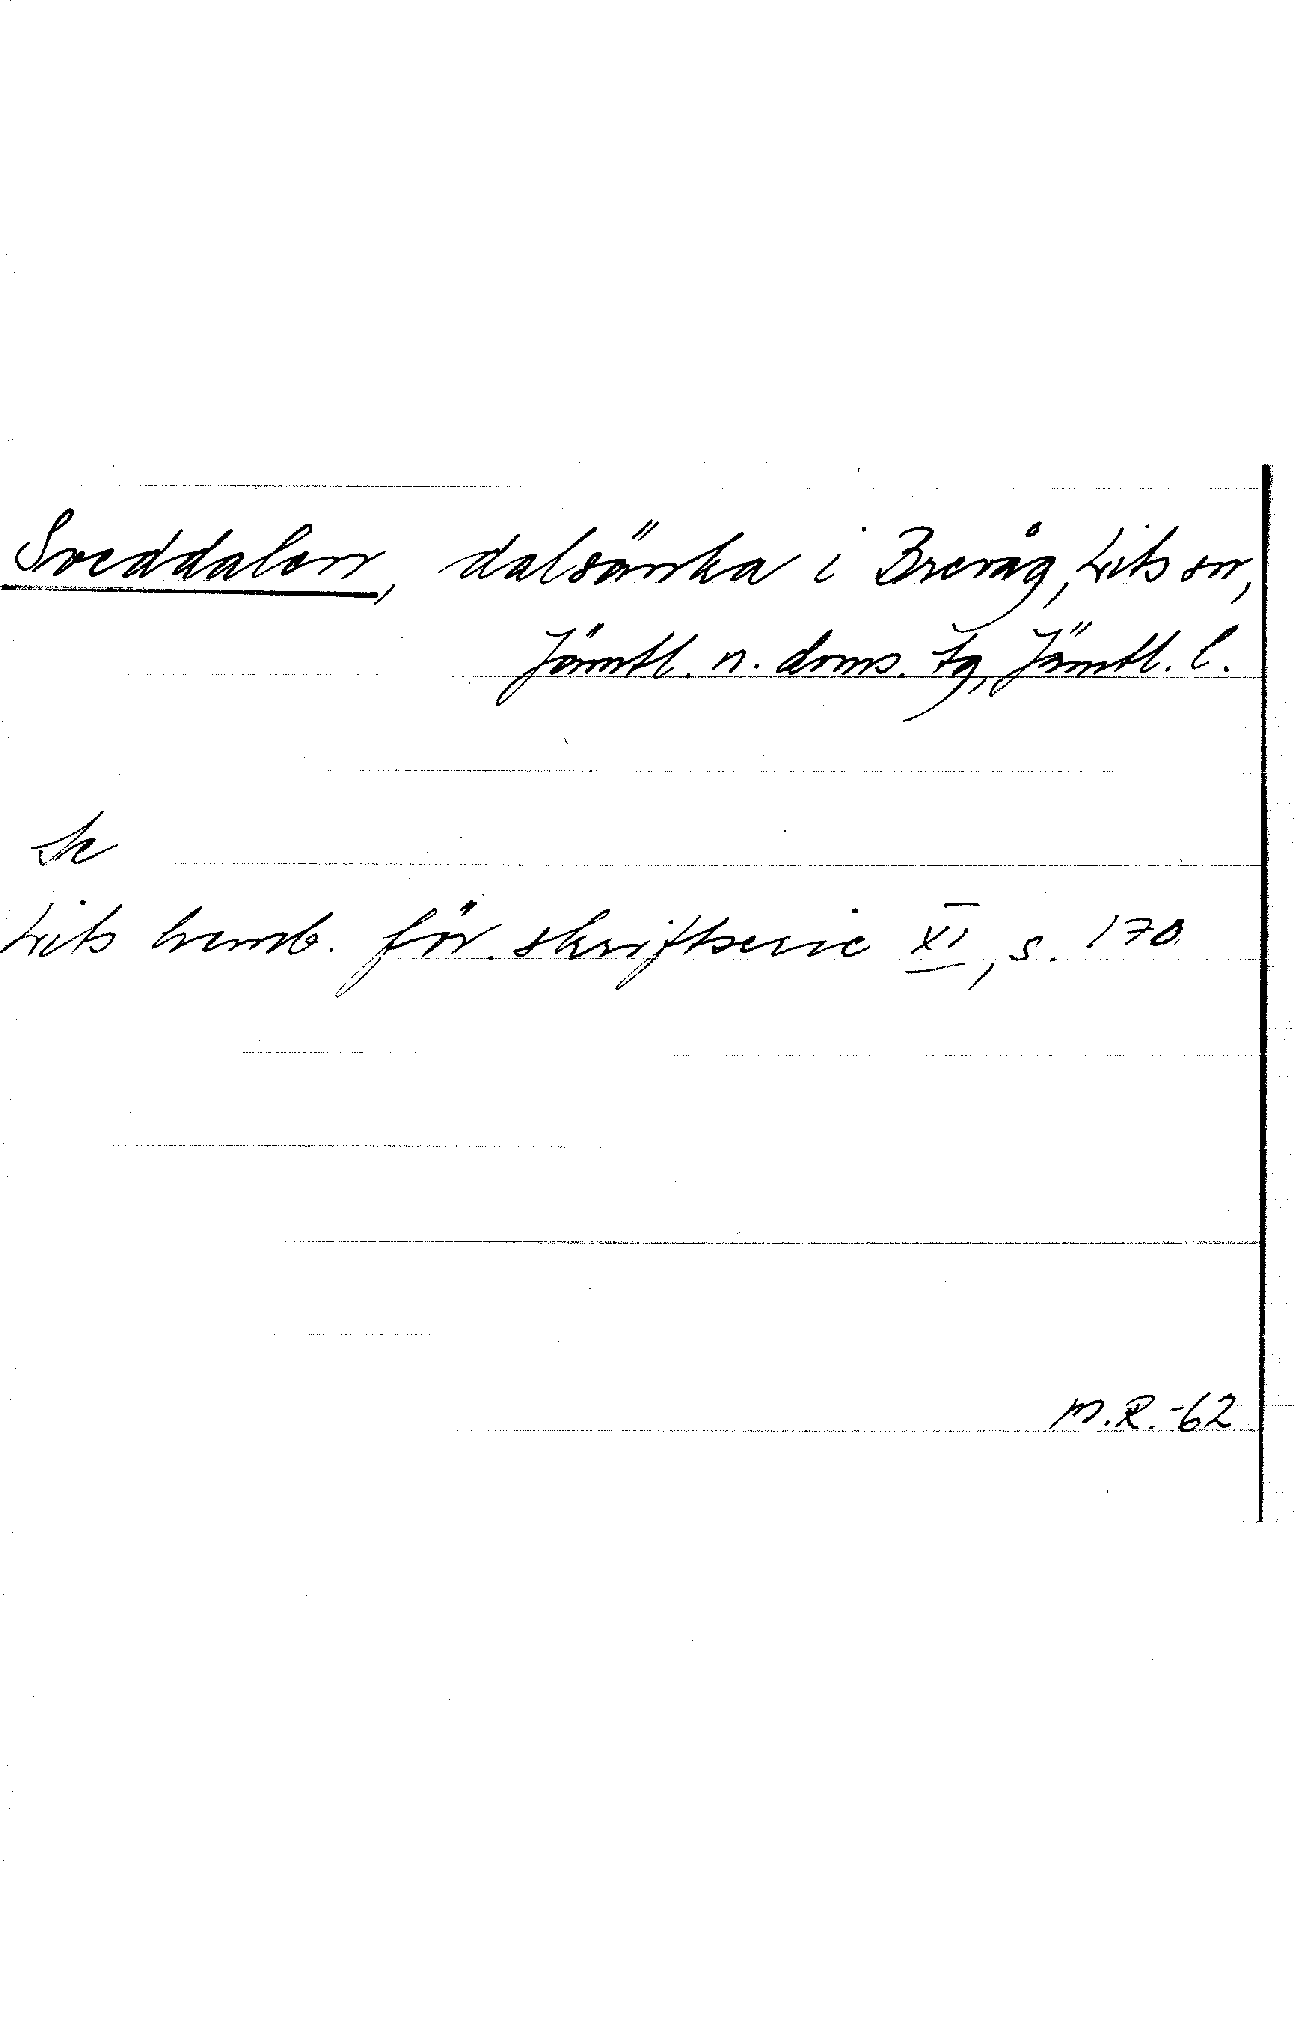 Sveddalen, dalsänka i Brevåg, Lits sn,
Jämtl. n. doms. tg, Jämtl. l.
Lits hemb. för. skriftserie XI, s. 170
M.R.-62